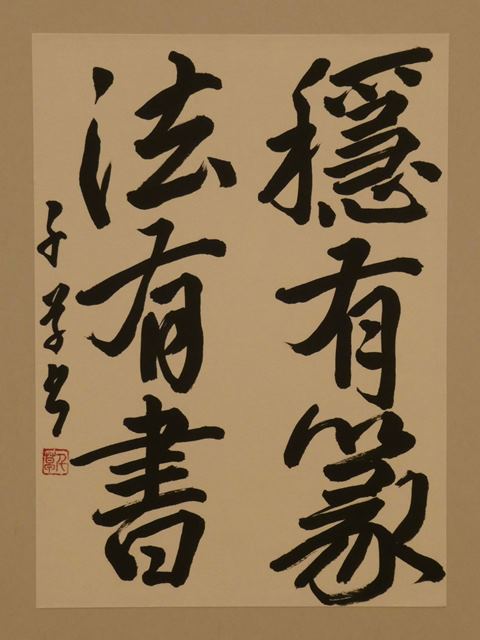 穩有篆
法有書
子學書